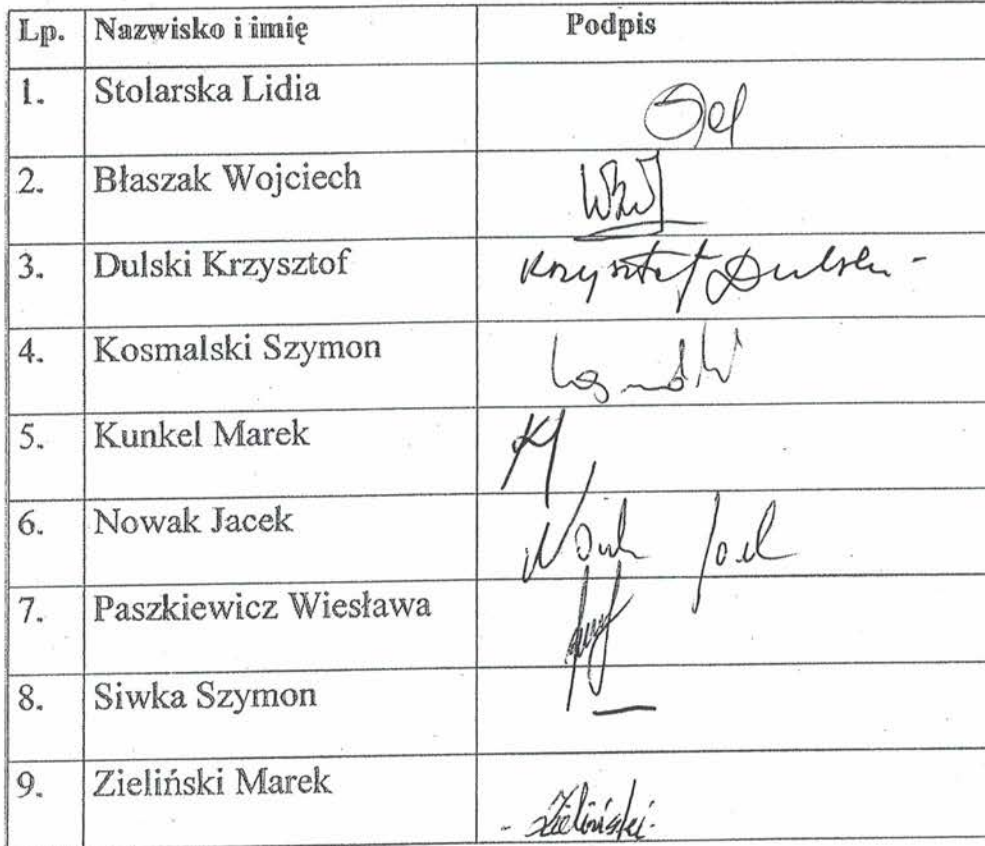 Lp. Nazwisko i imię Podpis
1. Stolarska Lidia
2. Błaszak Wojciech
3. Dulski Krzysztof Krzysztof Dulski -
4. Kosmalski Szymon
5. Kunkel Marek
6. Nowak Jacek
7. Paszkiewicz Wiesława
8. Siwka Szymon —
9. Zieliński Marek - Zieliński.